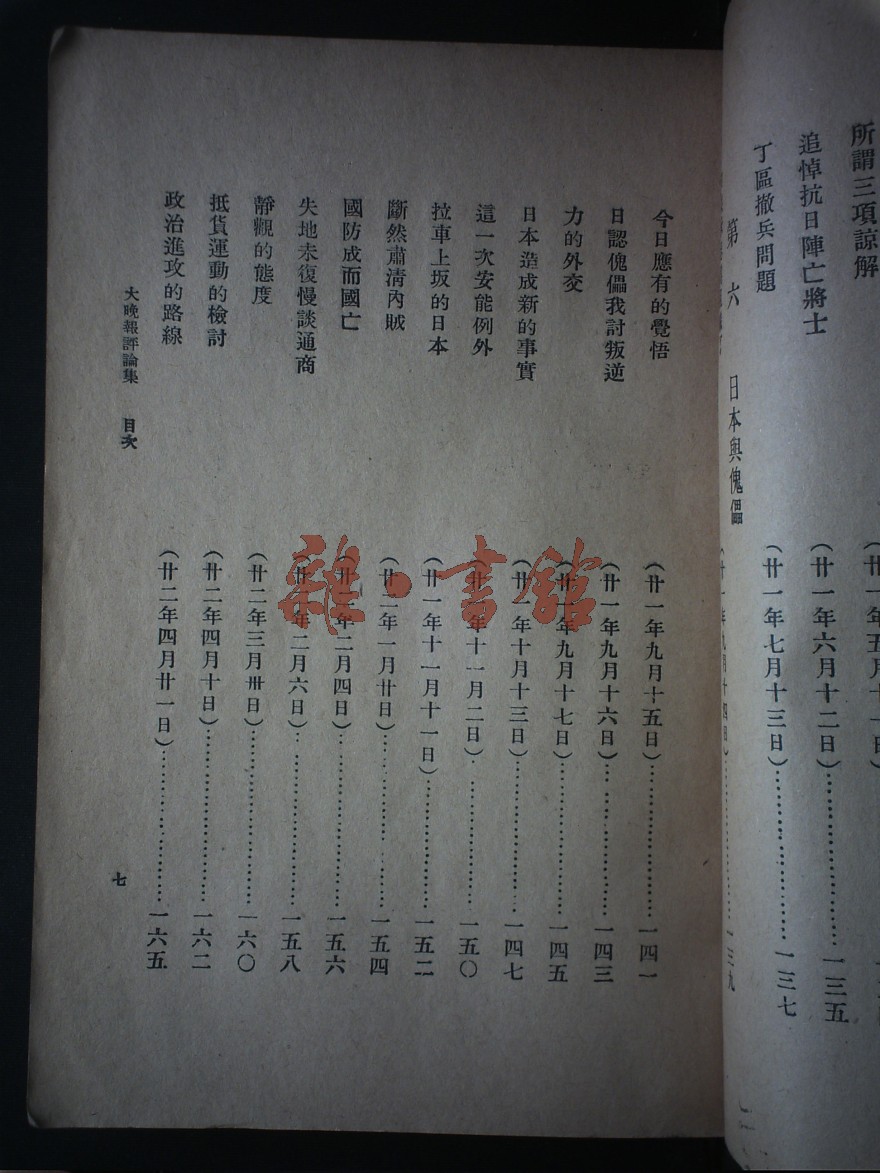 所謂三項諒解
追悼抗日陣亡將士（廿一年六月十二日）……一三五
丁區撤兵問題（廿一年七月十三日）……一三七
第六 日本與傀儡
（廿一年九月十四日）……一三九
今日應有的覺悟（廿一年九月十五日）……一四一
日認傀儡我討叛逆（廿一年九月十六日）……一四三
力的外交（廿一年九月十七日）……一四五
日本造成新的事實（廿一年十月十三日）……一四七
這一次安能例外（廿一年十一月二日）……一五〇
拉車上坂的日本（廿一年十一月十一日）……一五二
斷然肅清內賊（廿二年一月廿日）……一五四
國防成而國亡（廿二年二月四日）……一五六
失地未復慢談通商（廿二年二月六日）……一五八
靜觀的態度（廿二年三月卅日）……一六〇
抵貨運動的檢討（廿二年四月十日）……一六二
政治進攻的路線（廿二年四月廿一日）……一六五
大晚報評論集 目次 七
雜·書館